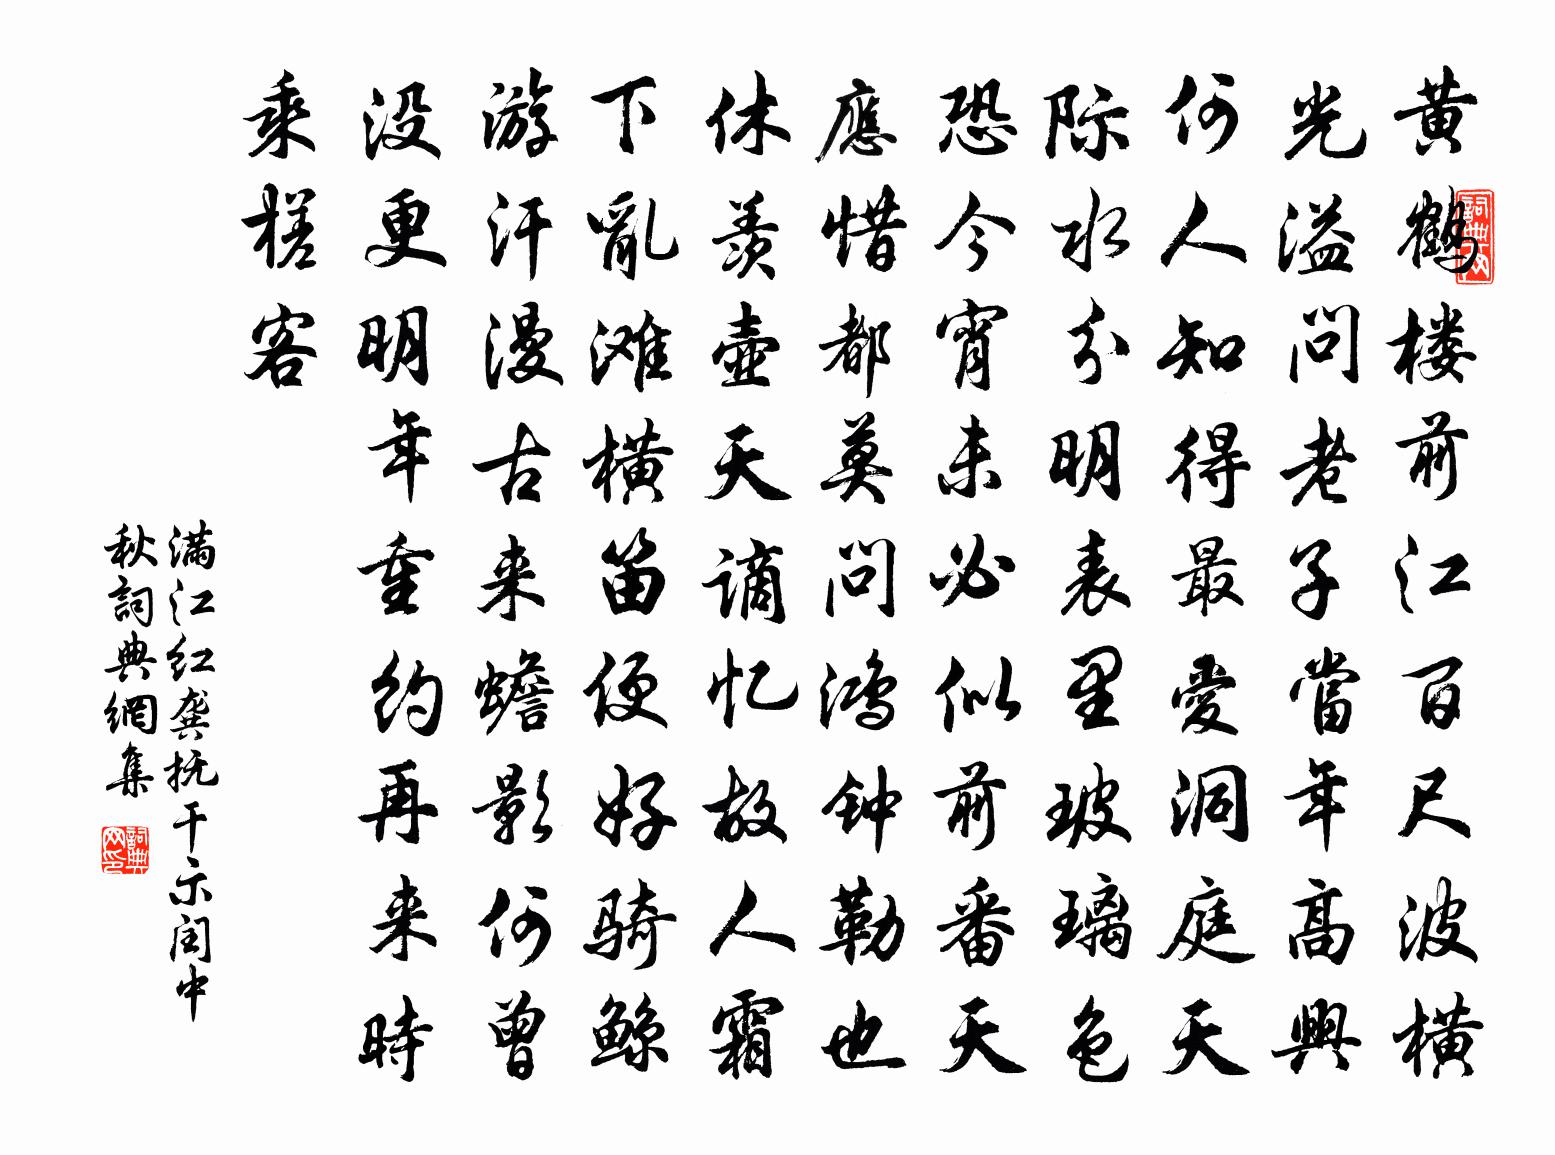 黄鹤楼前江百尺波横
光溢问老子當年高興
何人知得最愛洞庭天
际水分明表里玻璃色
恐今宵未必似前番天
應惜都莫问鸿钟勒也
休羡壶天谪忆故人霜
下亂滩横笛便好骑鲸
游汗漫古来蟾影何曾
没更明年重约再来時
乘槎客
满江红龚抚干示闰中
秋詞典網集
詞典网
詞典网印